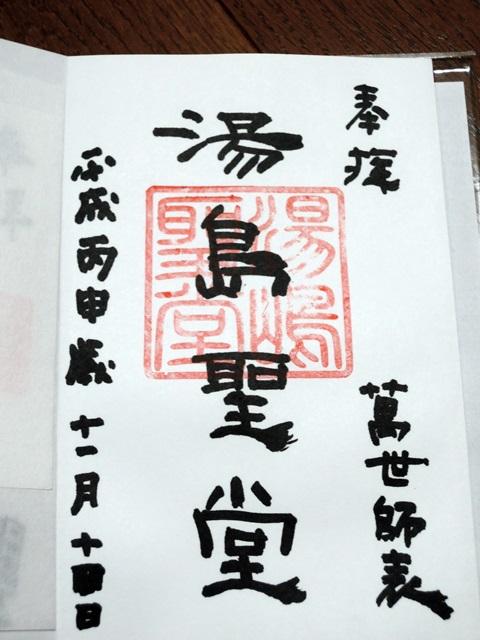 奉拝
萬世師表
湯島聖堂
湯嶋聖堂
平成丙申歳 十一月 十四日